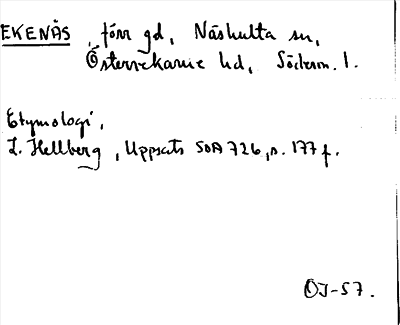 EKENÄS, förr gd, Näshulta sn,
Österrekarne hd, Söderm. l.
Etymologi,
L. Hellberg, Uppsats SOA 726, s. 177 f.
ÖJ-57.